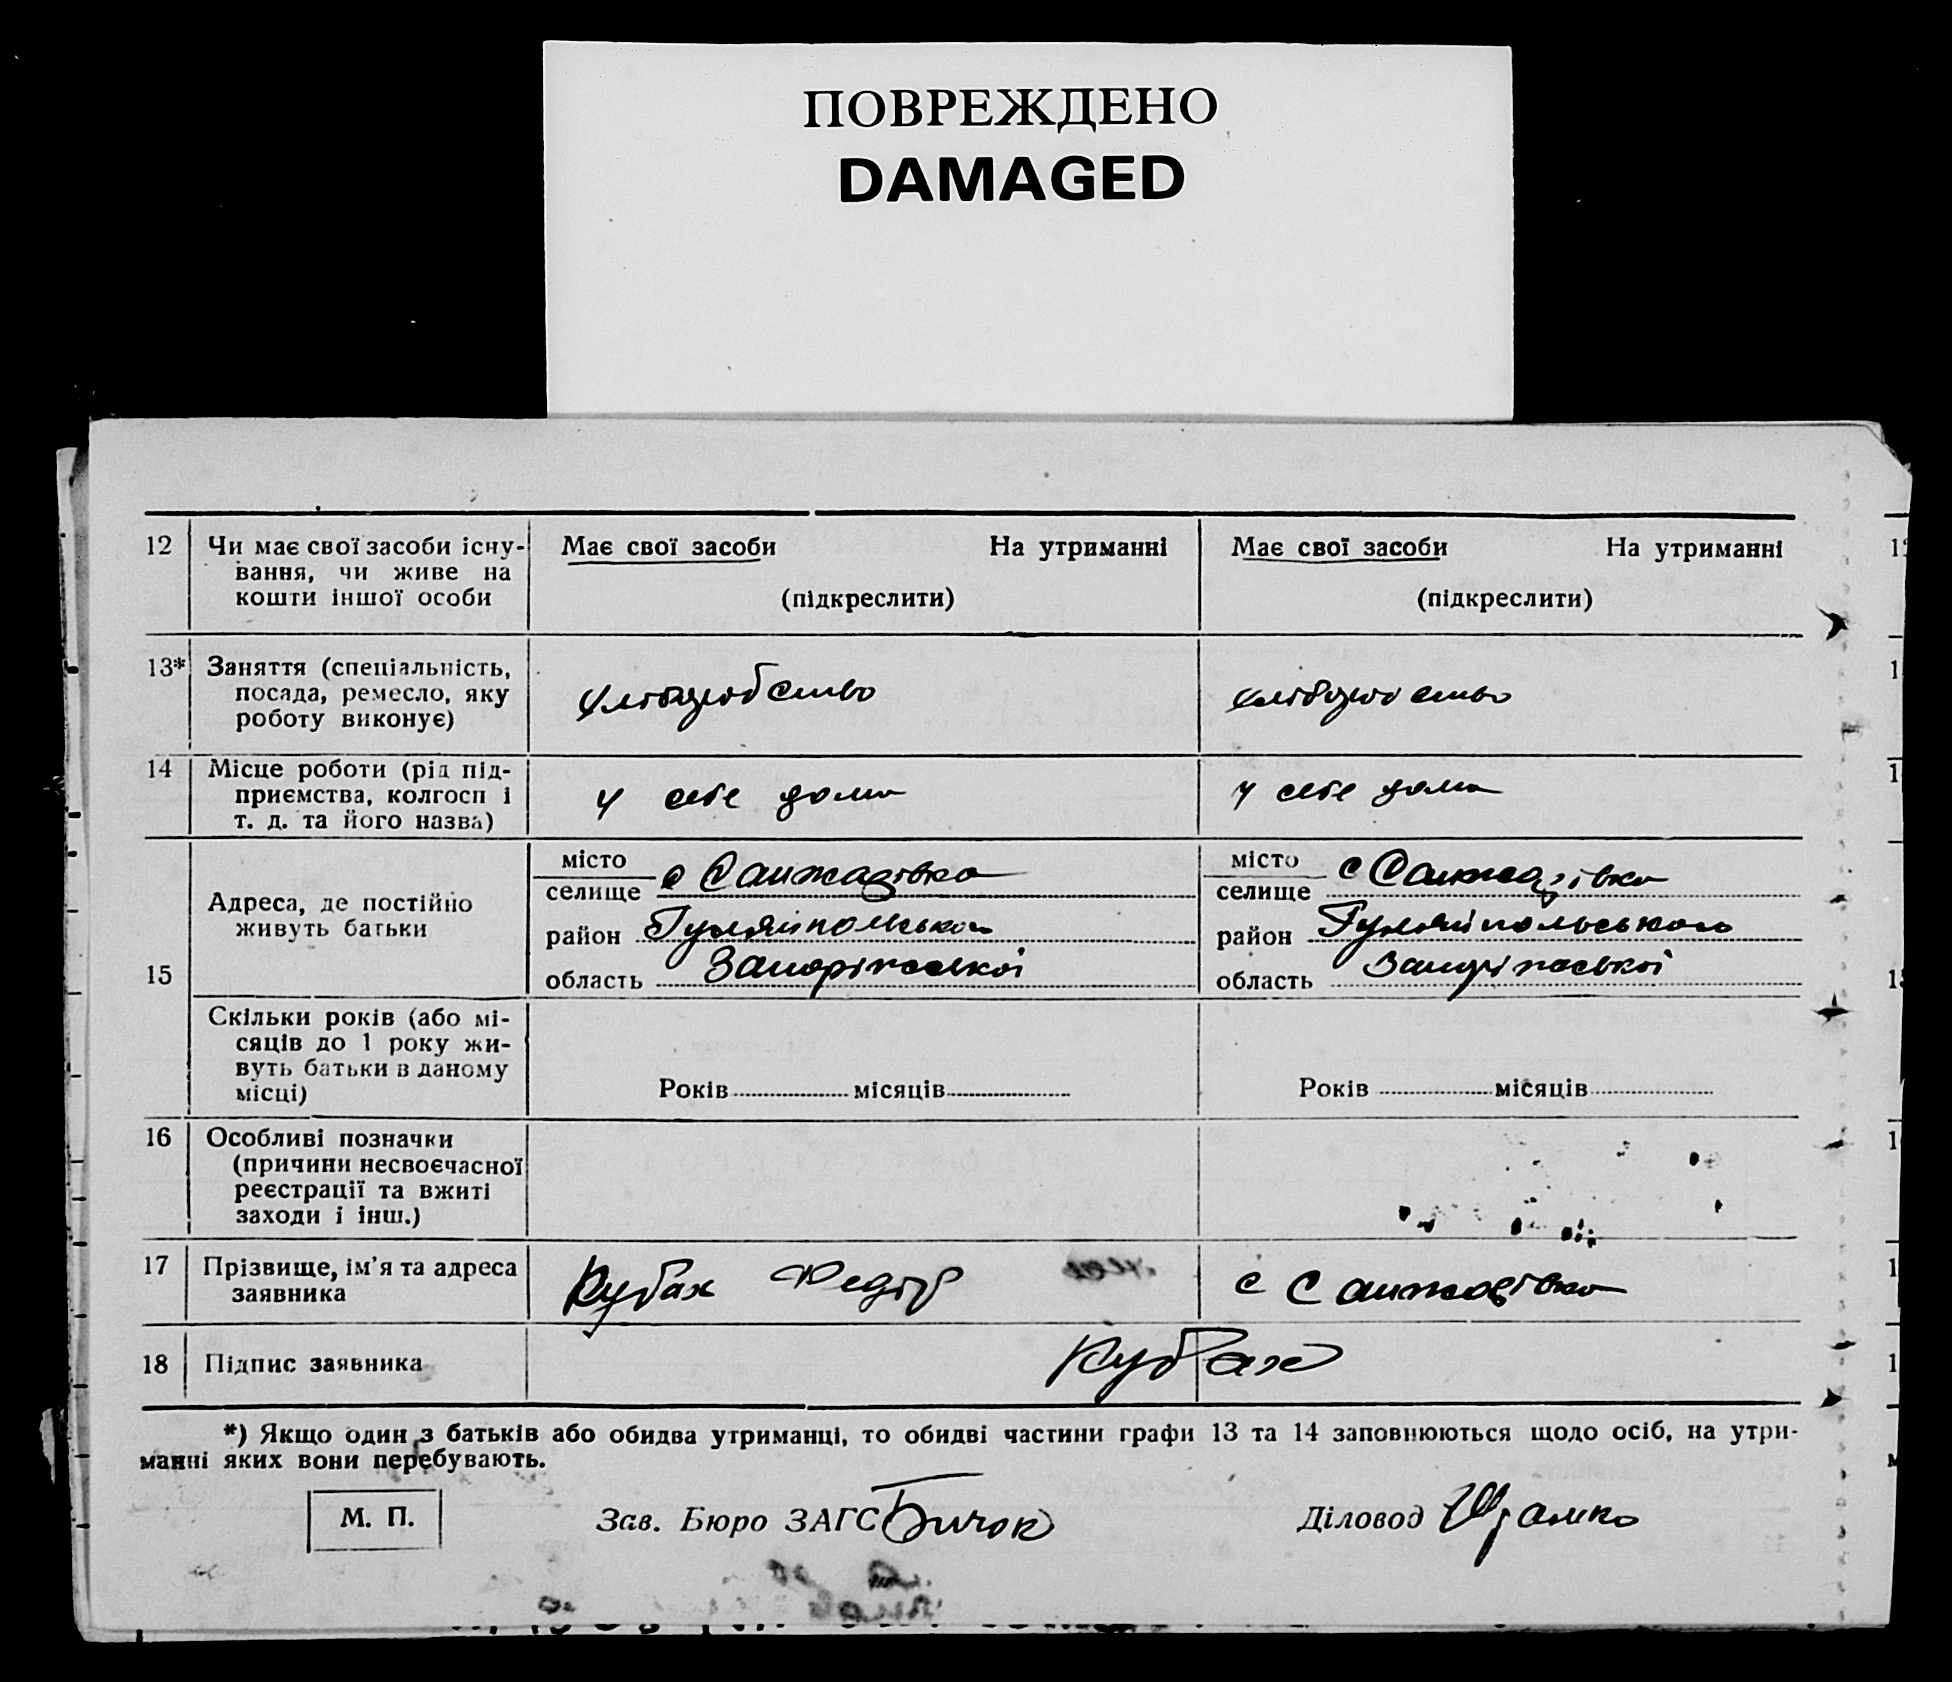 ПОВРЕЖДЕНО
DAMAGED
12 Чи має свої засоби існу-
вання, чи живе на
кошти іншої особи
Має свої засоби На утриманні
(підкреслити)
Має свої засоби На утриманні
(підкреслити)
13* Заняття (спеціальність,
посада, ремесло, яку
роботу виконує)
хліборобство
хліборобство
14 Місце роботи (рід під-
приємства, колгосп і
т. д. та його назва)
у себе дома
у себе дома
15 Адреса, де постійно
живуть батьки
місто
селище с Санжарівка
район Гуляйпольського
область Запоріжської
місто
селище с Санжарівка
район Гуляйпольського
область Запоріжської
Скільки років (або мі-
сяців до 1 року жи-
вуть батьки в даному
місці)
Років місяців
Років місяців
16 Особливі позначки
(причини несвоєчасної
реєстрації та вжиті
заходи і інш.)
17 Прізвище, ім'я та адреса
заявника
Кубах Федір с Санжарівка
18 Підпис заявника Кубах
*) Якщо один з батьків або обидва утриманці, то обидві частини графи 13 та 14 заповнюються щодо осіб, на утри-
манні яких вони перебувають.
М. П. Зав. Бюро ЗАГС Бичок Діловод Шрамко